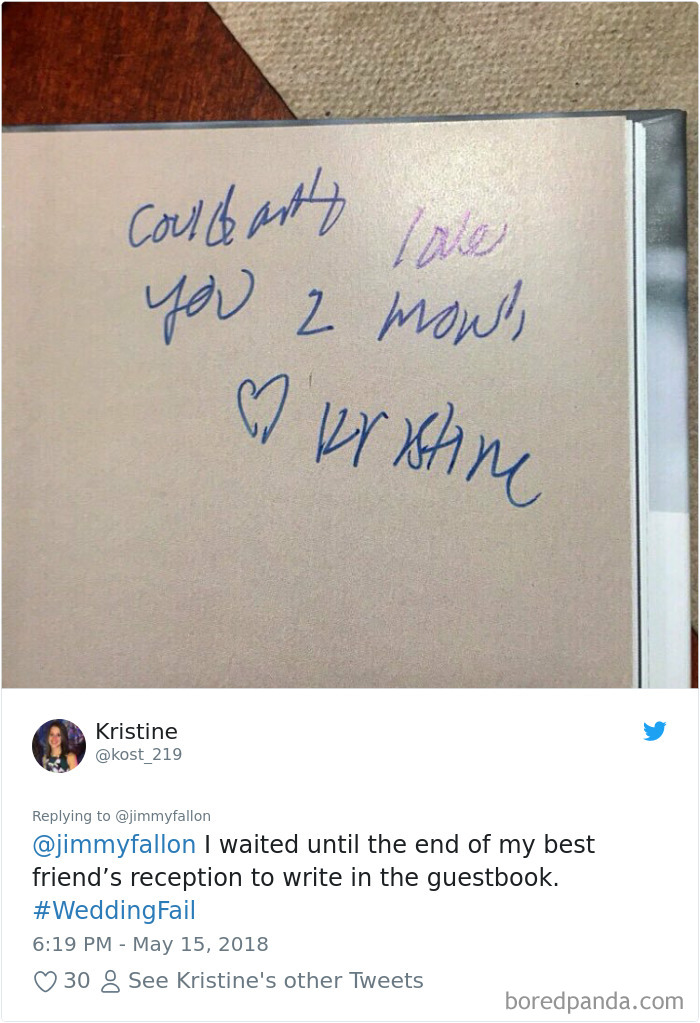 love
you 2 mow
♡ Kristine
Kristine
@kost_219
Replying to @jimmyfallon
@jimmyfallon I waited until the end of my best
friend’s reception to write in the guestbook.
#WeddingFail
6:19 PM - May 15, 2018
30 See Kristine's other Tweets
boredpanda.com